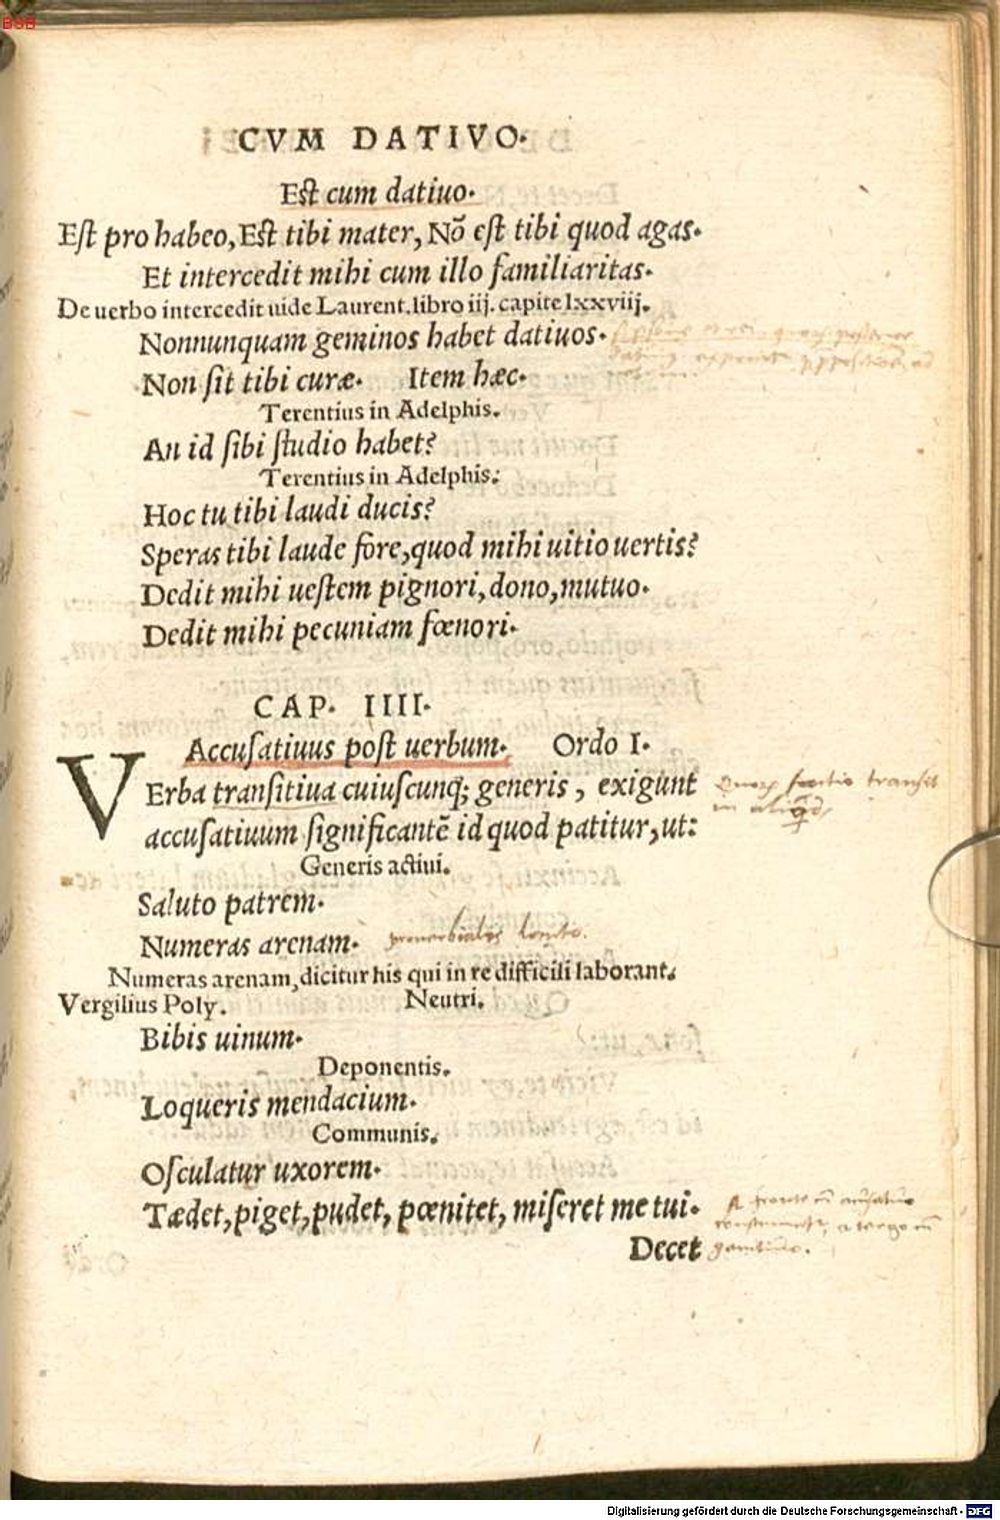 BSB
CVM DATIVO.
Est cum datiuo.
Eſt pro habeo, Est tibi mater, Nõ eſt tibi quod agas.
Et intercedit mihi cum illo familiaritas.
De uerbo intercedit uide Laurent. libro iij. capite lxxviij.
Nonnunquam geminos habet datiuos.
Non ſit tibi curæ. Item hæc.
Terentius in Adelphis.
An id ſibi ſtudio habet?
Terentius in Adelphis:
Hoc tu tibi laudi ducis?
Speras tibi laude fore, quod mihi uitio uertis?
Dedit mihi ueſtem pignori, dono, mutuo.
Dedit mihi pecuniam fœnori.
CAP. IIII.
Accuſatiuus poſt uerbum. Ordo I.
VErba tranſitiua cuiuſcunq; generis, exigunt
accuſatiuum ſignificantẽ id quod patitur, ut:
in aliquid
Generis actiui.
Saluto patrem.
Numeras arenam.
Numeras arenam, dicitur his qui in re difficili laborant.
Vergilius Poly. Neutri.
Bibis uinum.
Deponentis.
Loqueris mendacium.
Communis.
Oſculatur uxorem.
Tædet, piget, pudet, pœnitet, miſeret me tui.
Decet
Digitalisierung gefördert durch die Deutsche Forschungsgemeinschaft - DFG